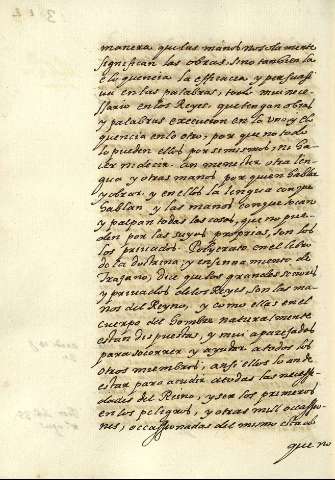 manera que las manos no solamente
significan las obras, sino tambien la
eloquencia la efficacia y persuasi
va en las palabras, todo mui nece-
ssario en los Reyes, que tengan obras
y palabras execucion en lo uno y elo
quencia en lo otro, por que no todo
lo pueden ellos por si mismos, ni ha-
cer ni decir. han menester otra len
gua y otras manos por quien hablar
y obrar, y en ellos la lengua con que
hablan, y las manos con que tocan
y palpan todas las cosas, que no pue-
den por las suyas proprias, son los
sus privados. Policrato en el libro
de la doctrina, y enseñamiento de
Trajano, dice que los grandes señores
y privados de los Reyes, son las ma
nos del Reyno, y como ellas en el
cuerpo del hombre naturalmente
estan dispuestas, y mui aparejadas
para socorrer y ayudar a todos los
otros miembros, assi ellos lo an de
estar para acudir a todas las necessi-
dades del Reyno, y ser los primeros
en los peligros, y otras mill occassio-
nes, occassionadas del mismo estado
que no